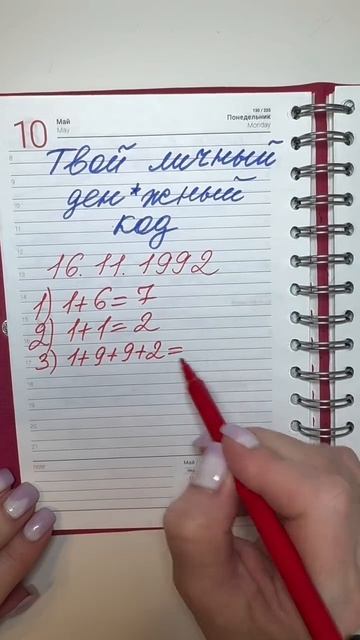 10
Май
May
130 / 235
Понедельник
Monday
8
9
10
11
12
13
14
15
16
17
18
19
20
21
Твой личный
ден*жный
код
16.11.1992
1) 1+6=7
2) 1+1=2
3) 1+9+9+2=
Май